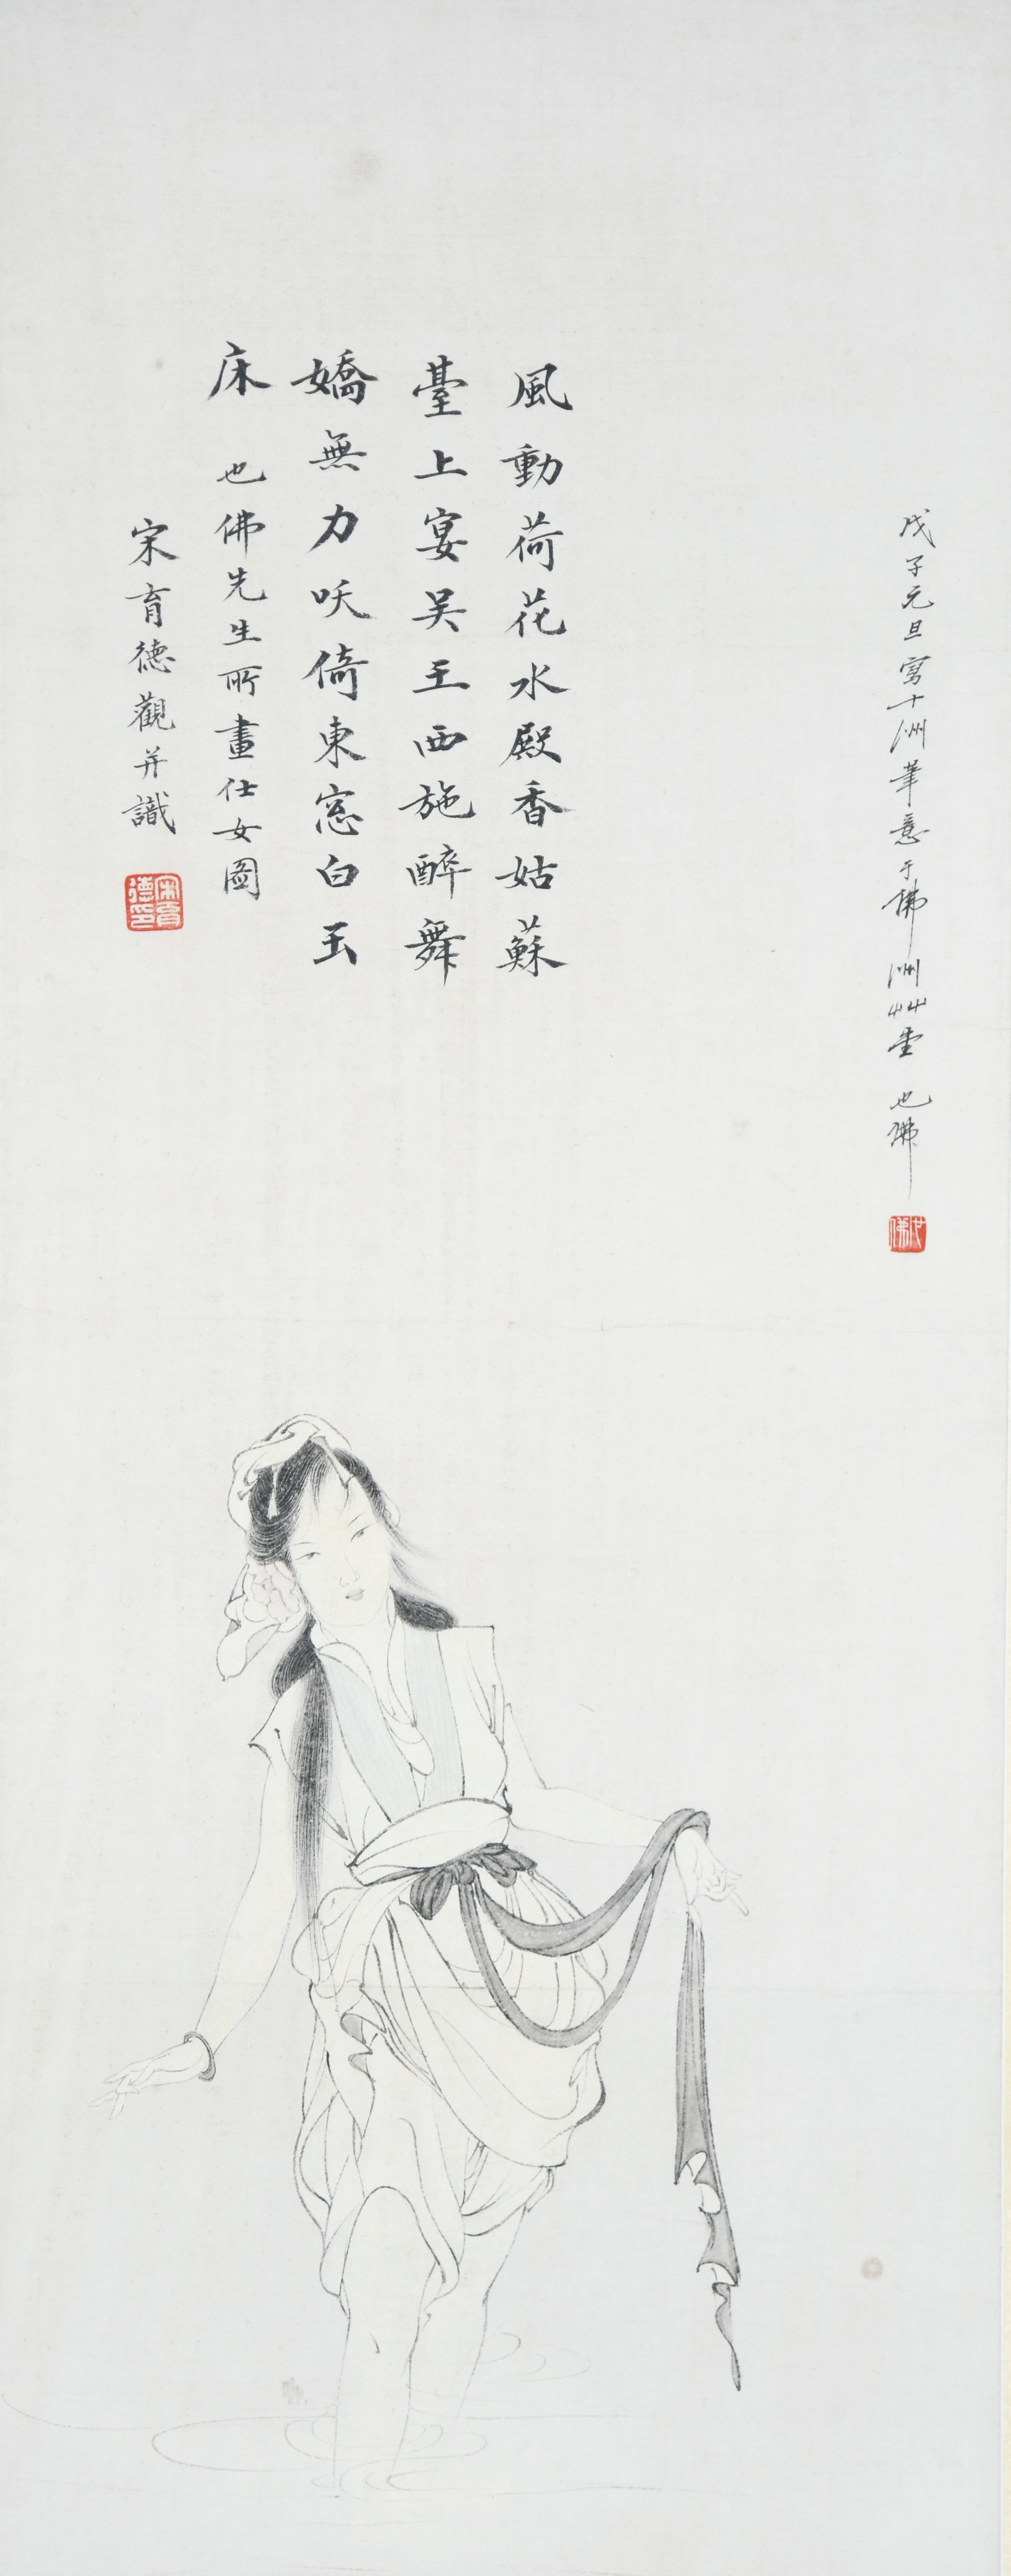 戊子元旦寫十洲筆意于佛洲艸堂 也佛
也佛
風動荷花水殿香姑蘇
臺上宴吳王西施醉舞
嬌無力咲倚東窓白玉
床 也佛先生所畫仕女圖
宋育德觀并識
宋育德印